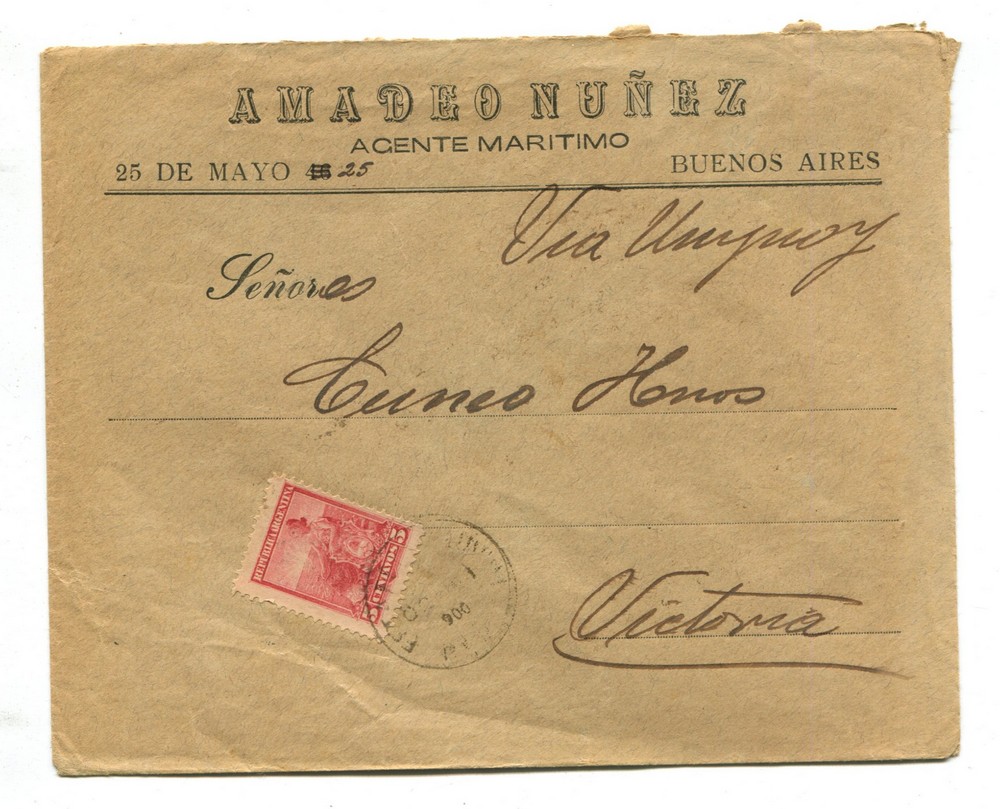 AMADEO NUÑEZ
AGENTE MARITIMO
25 DE MAYO 46 25 BUENOS AIRES
Via Uruguay
Señores
Cuneo Hnos
REPUBLICA ARGENTINA
5 CENTAVOS 5
900
Victoria